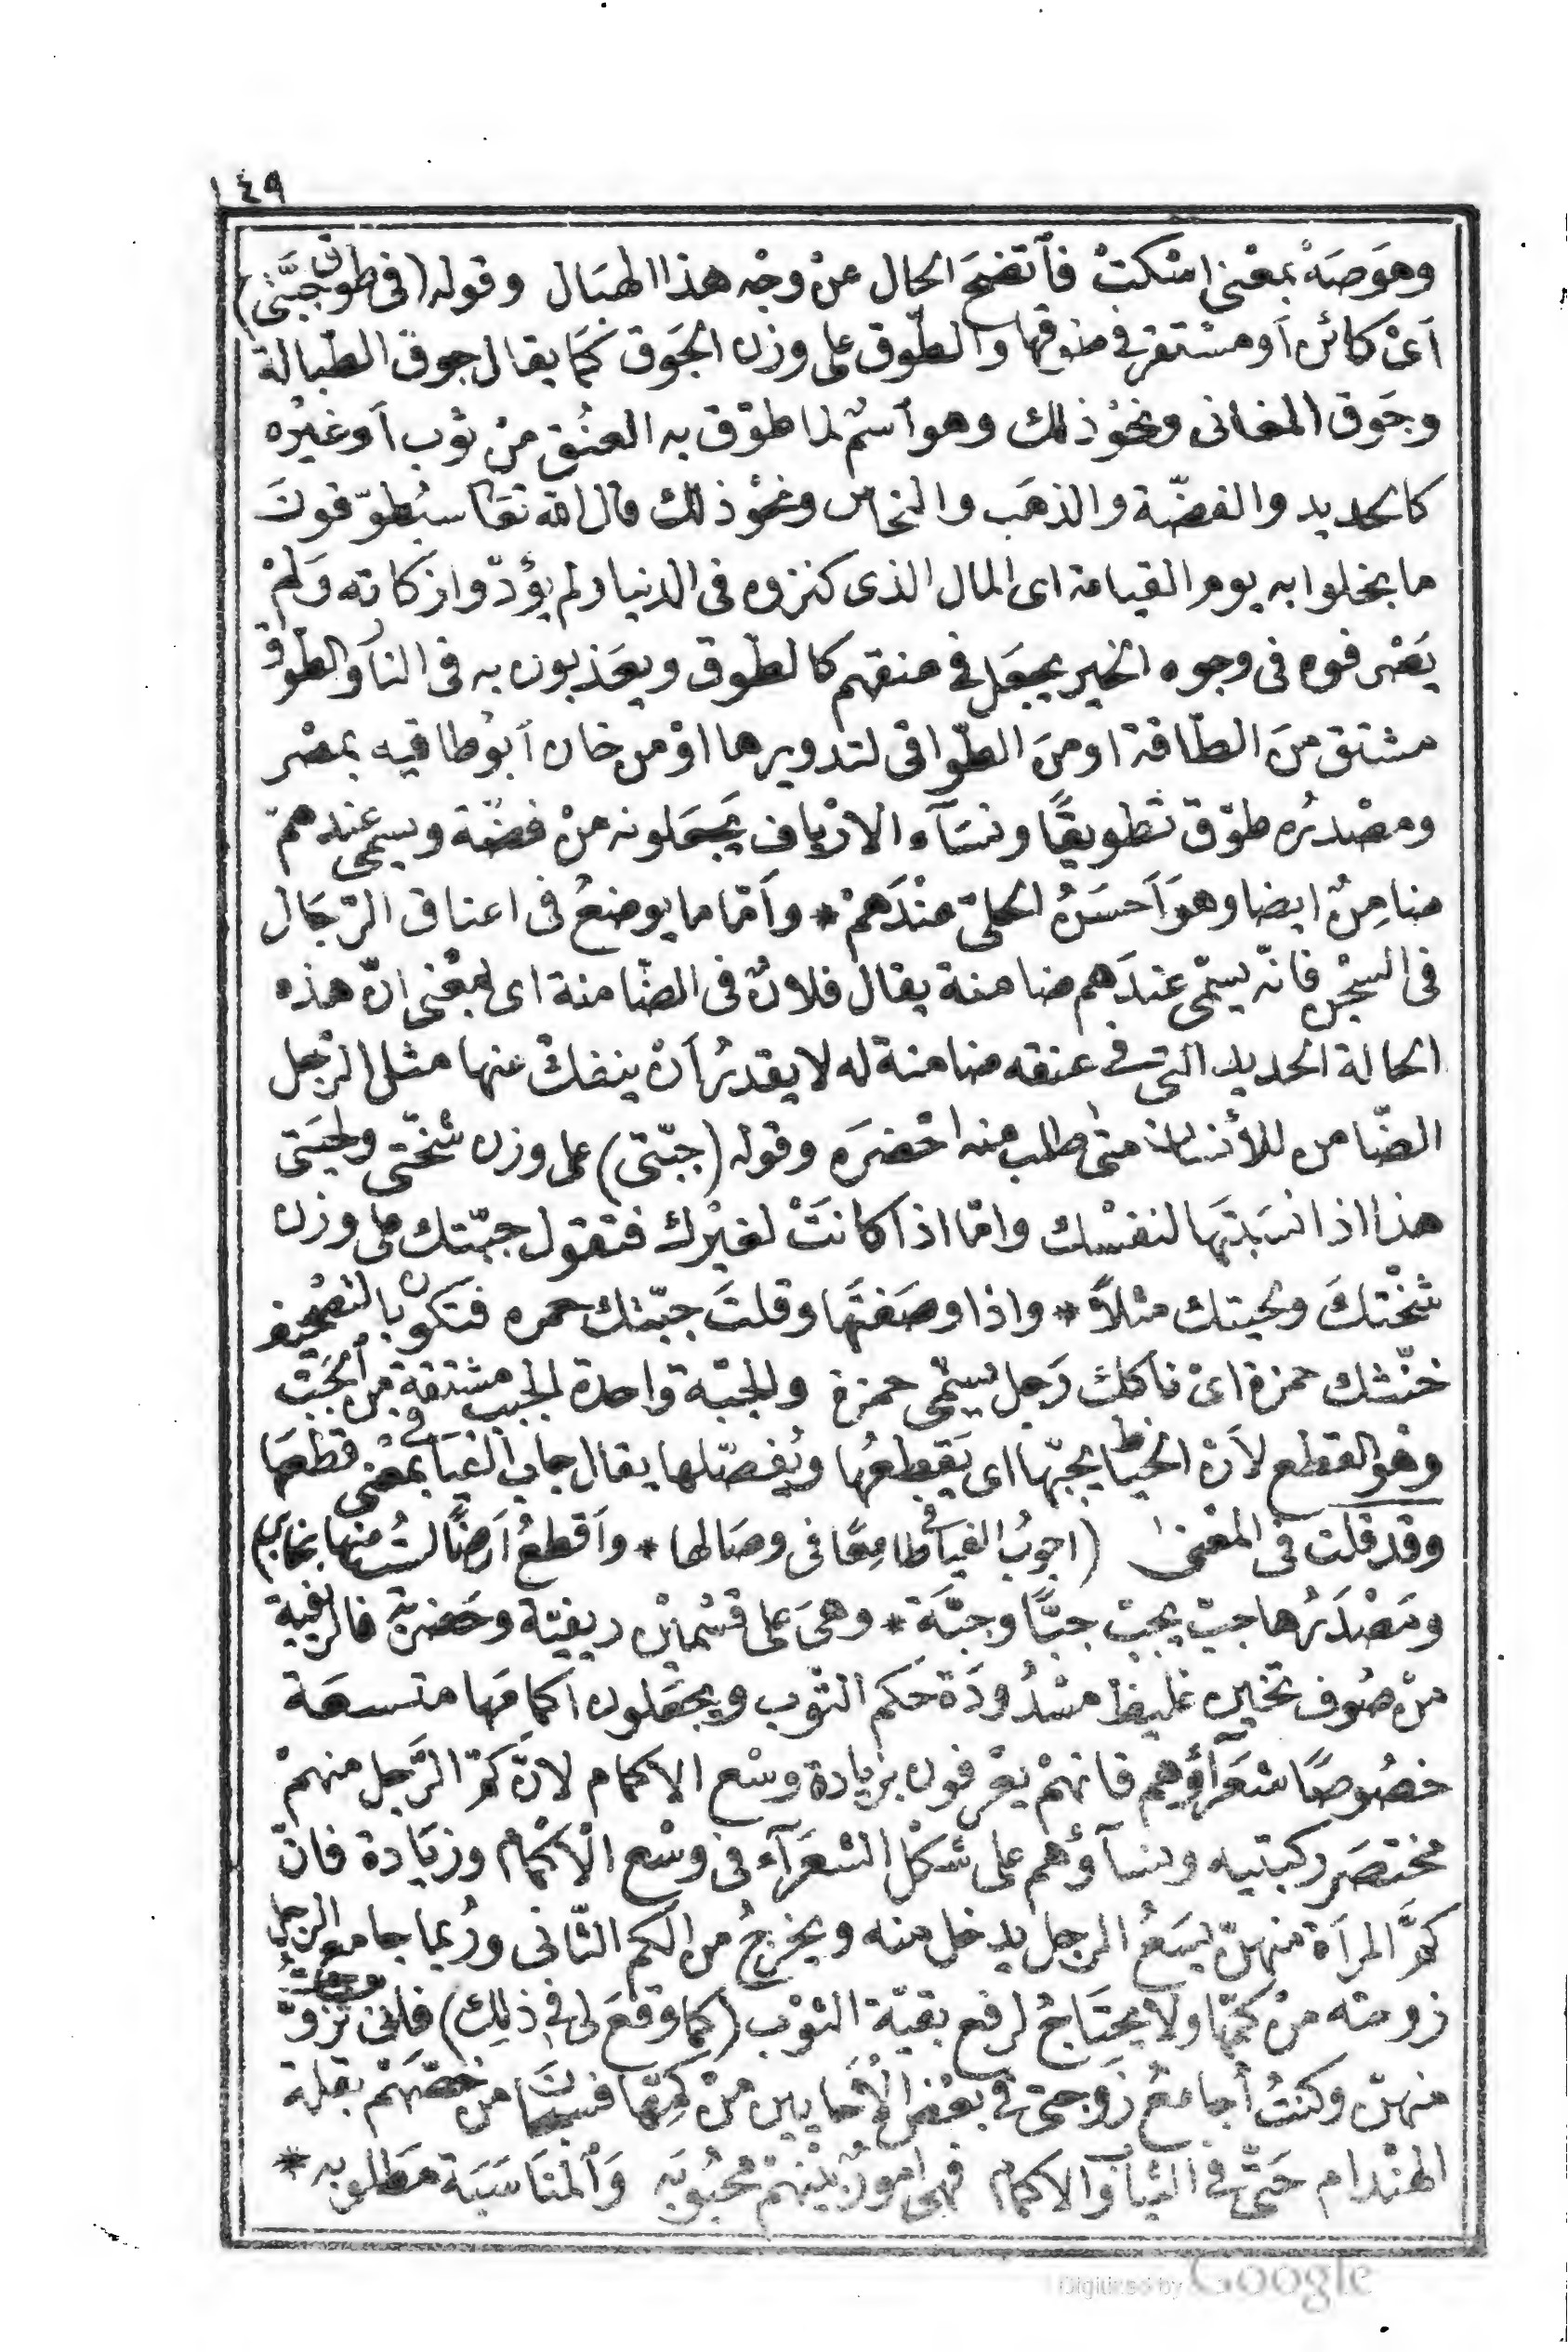 ١٤٩
وهوَ صَهْ بمعْنى اسْكتْ فٱتضحَ الحال عنْ وجْه هذا الهبَال وقوله (فى طوق جبَّتى)
أىْ كائن أو مسْتقر فى طوقها والطّوق على وزن الجَوق كمَا يقال جوق الطّبالة
وجَوق المغانى ونحْوُ ذلك وهو ٱسْم لما طوّق به العنُق منْ ثوْب أو غيرْه
كالحديد والفضّة والذهَب والنحاس ونحْوُ ذلك قال الله تعَا سيُطوّقونَ
ما بخلوا به يوم القيامة اى المال الذى كنزوه فى الدنيا ولم يؤدّوا زكاته وَلمْ
يَصْرفوه فى وجوه الخير يجعَل فى عنقهم كالطّوق ويعَذبون به فى النار والطّوق
مشتق منَ الطّاقة او منَ الطّواقى لتدويرها اوْ من خان أبوُ طاقيه بمصْر
ومصْدرُه طوّق تطويقًا ونسَآء الارْياف يجعلونه منْ فضّة ويسمى عندهمْ
ضامِنٌ ايضا وهوَ أحسَنُ الحلىّ عنْدَهمْ * وأمّا ما يوضعُ فى اعناق الرّجَال
فى السجْن فانّه يسمّى عندَهم ضامنة يقال فلانٌ فى الضّامنة اى بمعْنى انّ هذه
الحالة الحديد التى فى عنقه ضامنة له لا يقدرُ أنْ ينفكّ عنها مثل الرّجل
الضّامن للأنسان متى طلب منه احْضرَه وقوله (جبّتى) على وزن شخّتى ولحيَتى
هذا اذا نسَبتهَا لنفسْك وامّا اذا كانَتْ لغيْرك فتقول جبّتك على وزن
شخّتكَ ولحيتك مثلاً * واذا وصَفتهَا وقلتَ جبّتك حمره فتكون بالتصْحيف
خنّتك حمزة اىْ ناكك رَجل يسَمّى حمزة والجبّة واحدة الجبب مشتقة من الجَبّ
وهْو القطع لأنّ الخيّاط يجبّها اى يَقطعُها ويُفصّلها يقال جاب الفيَافى بمعْنى قطعهَا
وقد قلت فى المعْنى (اجوبُ الفيافى طامِعًا فى وصَالها * وأقطعُ أرضًا لسْتُ منها بخايب)
ومَصْدَرُها جبّ يجبّ جبًّا وجبَّة * وهىَ على قسْمينْ ريفيّة وحَضريّة فالريفية
منْ صُوف تخين غليظ مسْدُودَة حكم الثوْب ويجعَلون اكمامَها متسعَة
خصُوصًا شعَرآؤهم فانهمْ يعْرفون بزيادة وسْع الاكمام لانّ كمّ الرّجل منهمْ
مختصَر ركبتيه ونسآؤهم على شكْل الشعَرَآء فى وسْع الْاكْمام وزيَادة فانّ
كمَّ المرأة منهنّ يسَعُ الرجل يدخل منه ويخرجُ من الكم الثّانى ورُبما جامع الرجل
زوجته منْ كمّها ولا يحتَاجُ لرفع بقيّة الثوْب (كما وقعَ لى فى ذلِك) فانى تزوّجتُ
منهنّ وكنتُ أجامعُ زَوجتى فى بعْض الْاحايين منْ كمّها فسبحَانَ منْ خصّهَمْ بقلة
الهنْدام حَتّى فى الثياب والاكمام فهى امورٌ بيْنهمْ محْبُوبَه وَالْمنَاسَبَة مطَلوبه *
Digitized by Google